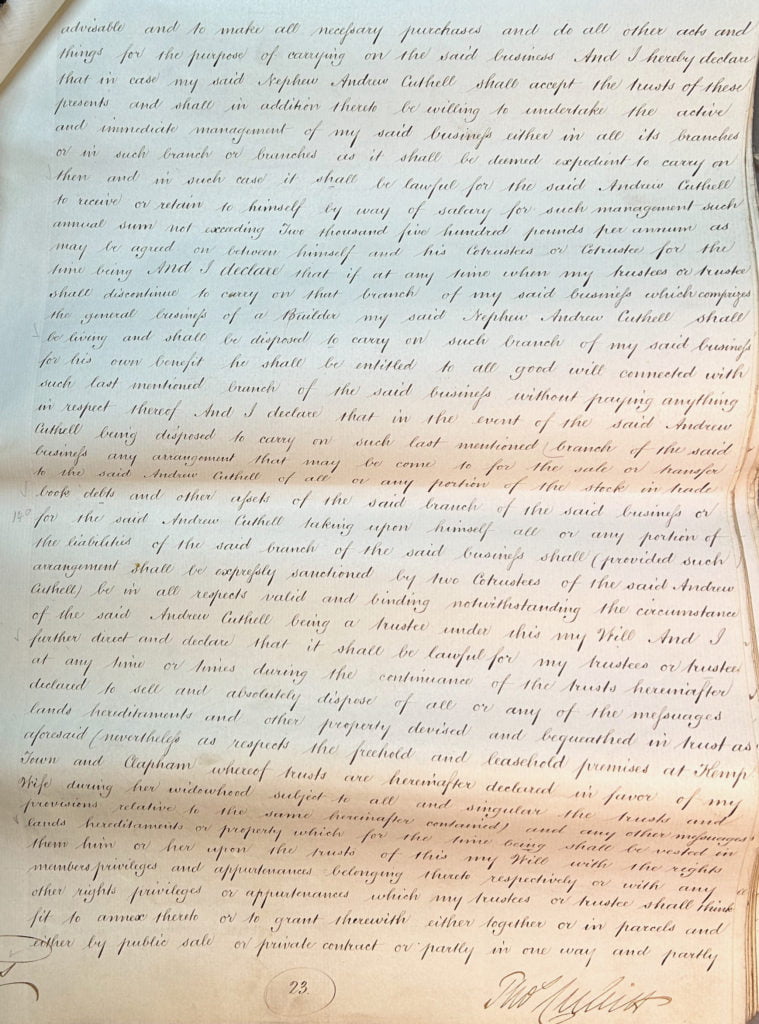 advisable and to make all necessary purchases and do all other acts and
things for the purpose of carrying on the said business And I hereby declare
that in case my said Nephew Andrew Cuthell shall accept the trusts of these
presents and shall in addition thereto be willing to undertake the active
and immediate management of my said business either in all its branches
or in such branch or branches as it shall be deemed expedient to carry on
then and in such case it shall be lawful for the said Andrew Cuthell
to receive or retain to himself by way of salary for such management such
annual sum not exceeding Two thousand five hundred pounds per annum as
may be agreed on between himself and his Cotrustees or Cotrustee for the
time being And I declare that if at any time when my trustees or trustee
shall discontinue to carry on that branch of my said business which comprizes
the general business of a Builder my said Nephew Andrew Cuthell shall
be living and shall be disposed to carry on such branch of my said business
for his own benefit he shall be entitled to all good will connected with
such last mentioned branch of the said business without paying anything
in respect thereof And I declare that in the event of the said Andrew
Cuthell being disposed to carry on such last mentioned branch of the said
business any arrangement that may be come to for the sale or transfer
to the said Andrew Cuthell of all or any portion of the stock in trade
book debts and other assets of the said branch of the said business or
for the said Andrew Cuthell taking upon himself all or any portion of
the liabilities of the said branch of the said business shall (provided such
arrangement shall be expressly sanctioned by two Cotrustees of the said Andrew
Cuthell) be in all respects valid and binding notwithstanding the circumstance
of the said Andrew Cuthell being a trustee under this my Will And I
further direct and declare that it shall be lawful for my trustees or trustee
at any time or times during the continuance of the trusts hereinafter
declared to sell and absolutely dispose of all or any of the messuages
lands hereditaments and other property devised and bequeathed in trust as
aforesaid (nevertheless as respects the freehold and leasehold premises at Kemp
Town and Clapham whereof trusts are hereinafter declared in favor of my
Wife during her widowhood subject to all and singular the trusts and
provisions relative to the same hereinafter contained) and any other messuages
lands hereditaments or property which for the time being shall be vested in
them him or her upon the trusts of this my Will with the rights
members privileges and appurtenances belonging thereto respectively or with any
other rights privileges or appurtenances which my trustees or trustee shall think
fit to annex thereto or to grant therewith either together or in parcels and
either by public sale or private contract or partly in one way and partly
23.
Thos Cubitt